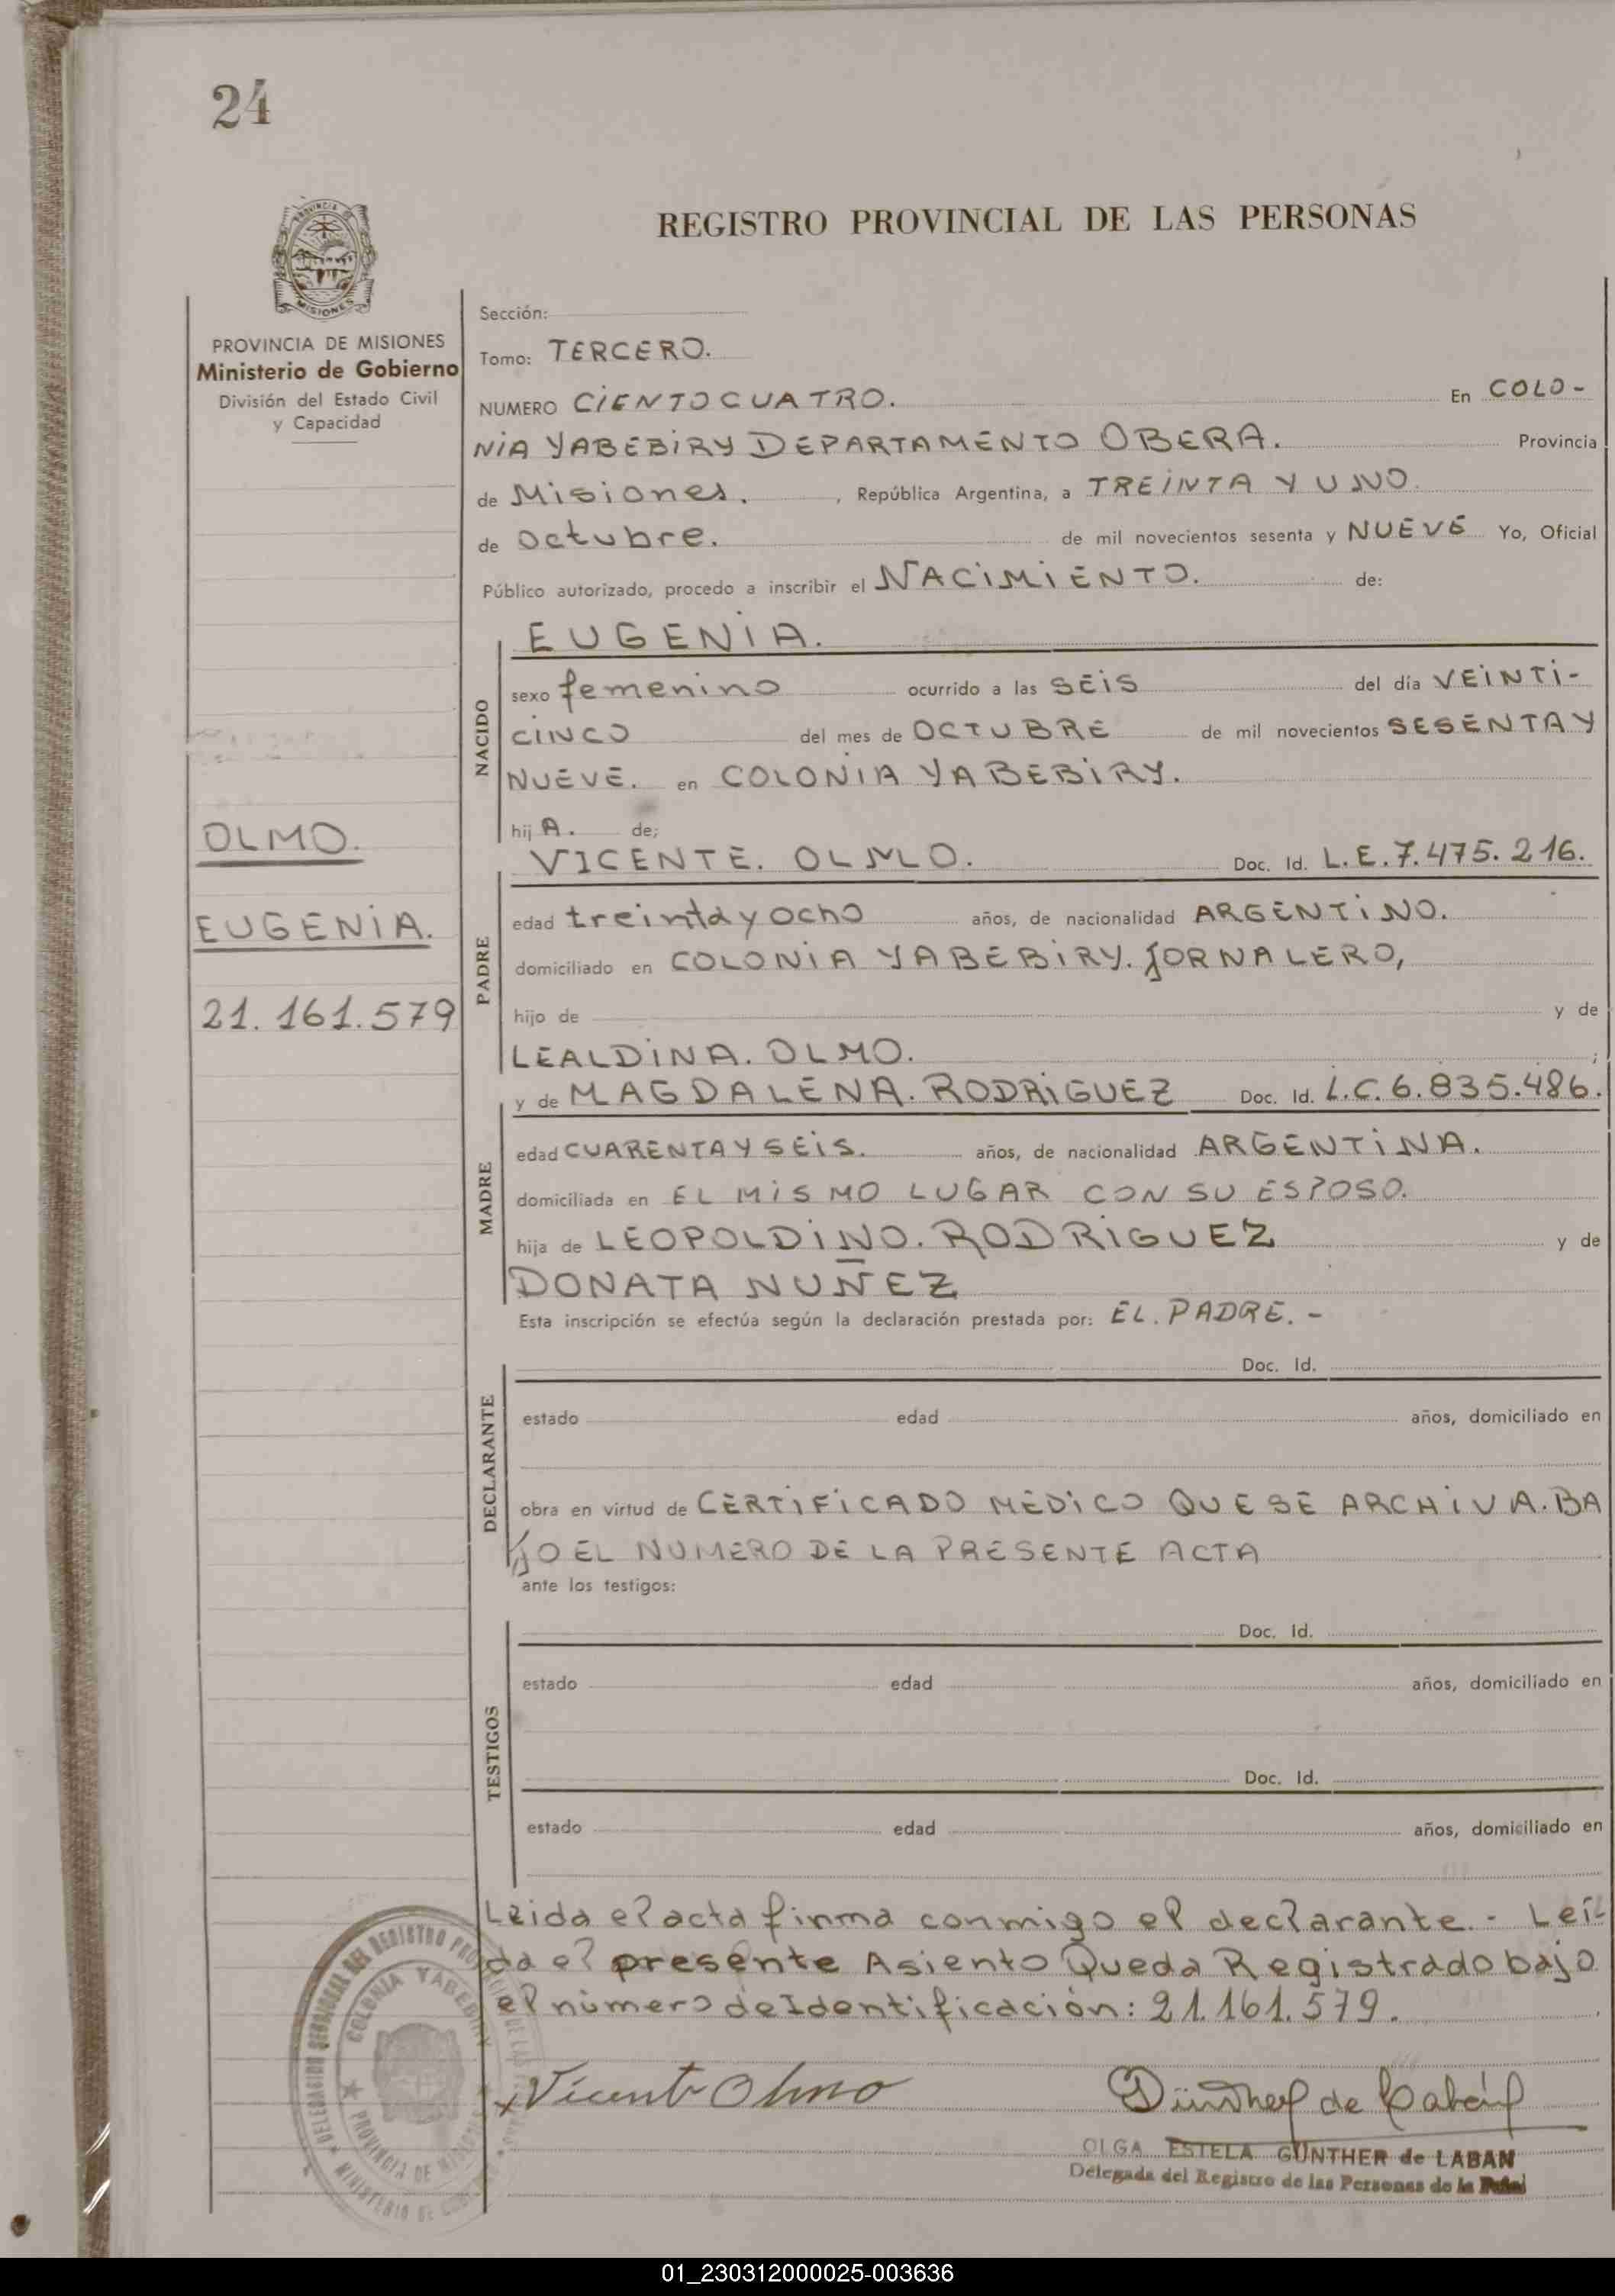 24
REGISTRO PROVINCIAL DE LAS PERSONAS
PROVINCIA DE MISIONES
Ministerio de Gobierno
División del Estado Civil
y Capacidad
OLMO.
EUGENIA.
21.161.579
Sección:
Tomo: TERCERO.
NUMERO CIENTO CUATRO. En COLO-
NIA YABEBIRY DEPARTAMENTO OBERA. Provincia
de Misiones. , República Argentina, a TREINTA Y UNO
de Octubre. de mil novecientos sesenta y NUEVE Yo, Oficial
Público autorizado, procedo a inscribir el NACIMIENTO. de:
NACIDO
EUGENIA.
sexo femenino ocurrido a las SEIS del día VEINTI-
CINCO del mes de OCTUBRE de mil novecientos SESENTA Y
NUEVE. en COLONIA YABEBIRY.
hij A. de;
PADRE
VICENTE. OLMO. Doc. Id. L.E.7.475.216.
edad treinta y ocho años, de nacionalidad ARGENTINO.
domiciliado en COLONIA YABEBIRY. JORNALERO,
hijo de y de
LEALDINA. OLMO. ;
MADRE
y de MAGDALENA. RODRIGUEZ Doc. Id. L.C.6.835.486.
edad CUARENTA Y SEIS. años, de nacionalidad ARGENTINA.
domiciliada en EL MISMO LUGAR CON SU ESPOSO.
hija de LEOPOLDINO. RODRIGUEZ y de
DONATA NUÑEZ
Esta inscripción se efectúa según la declaración prestada por: EL. PADRE. -
DECLARANTE
Doc. Id.
estado edad años, domiciliado en
obra en virtud de CERTIFICADO MEDICO QUE SE ARCHIVA. BA
JO EL NUMERO DE LA PRESENTE ACTA
ante los testigos:
TESTIGOS
Doc. Id.
estado edad años, domiciliado en
Doc. Id.
estado edad años, domiciliado en
Leida el acta firma conmigo el declarante.- Leí
da el presente Asiento Queda Registrado bajo
el número de Identificación: 21.161.579.
x Vicente Olmo
Günther de Labán
OLGA ESTELA GUNTHER de LABAN
Delegada del Registro de las Personas de la
DELEGACION REGISTRO
COLONIA YABEBIRY
PROVINCIA DE MISIONES
MINISTERIO DE
01_230312000025-003636